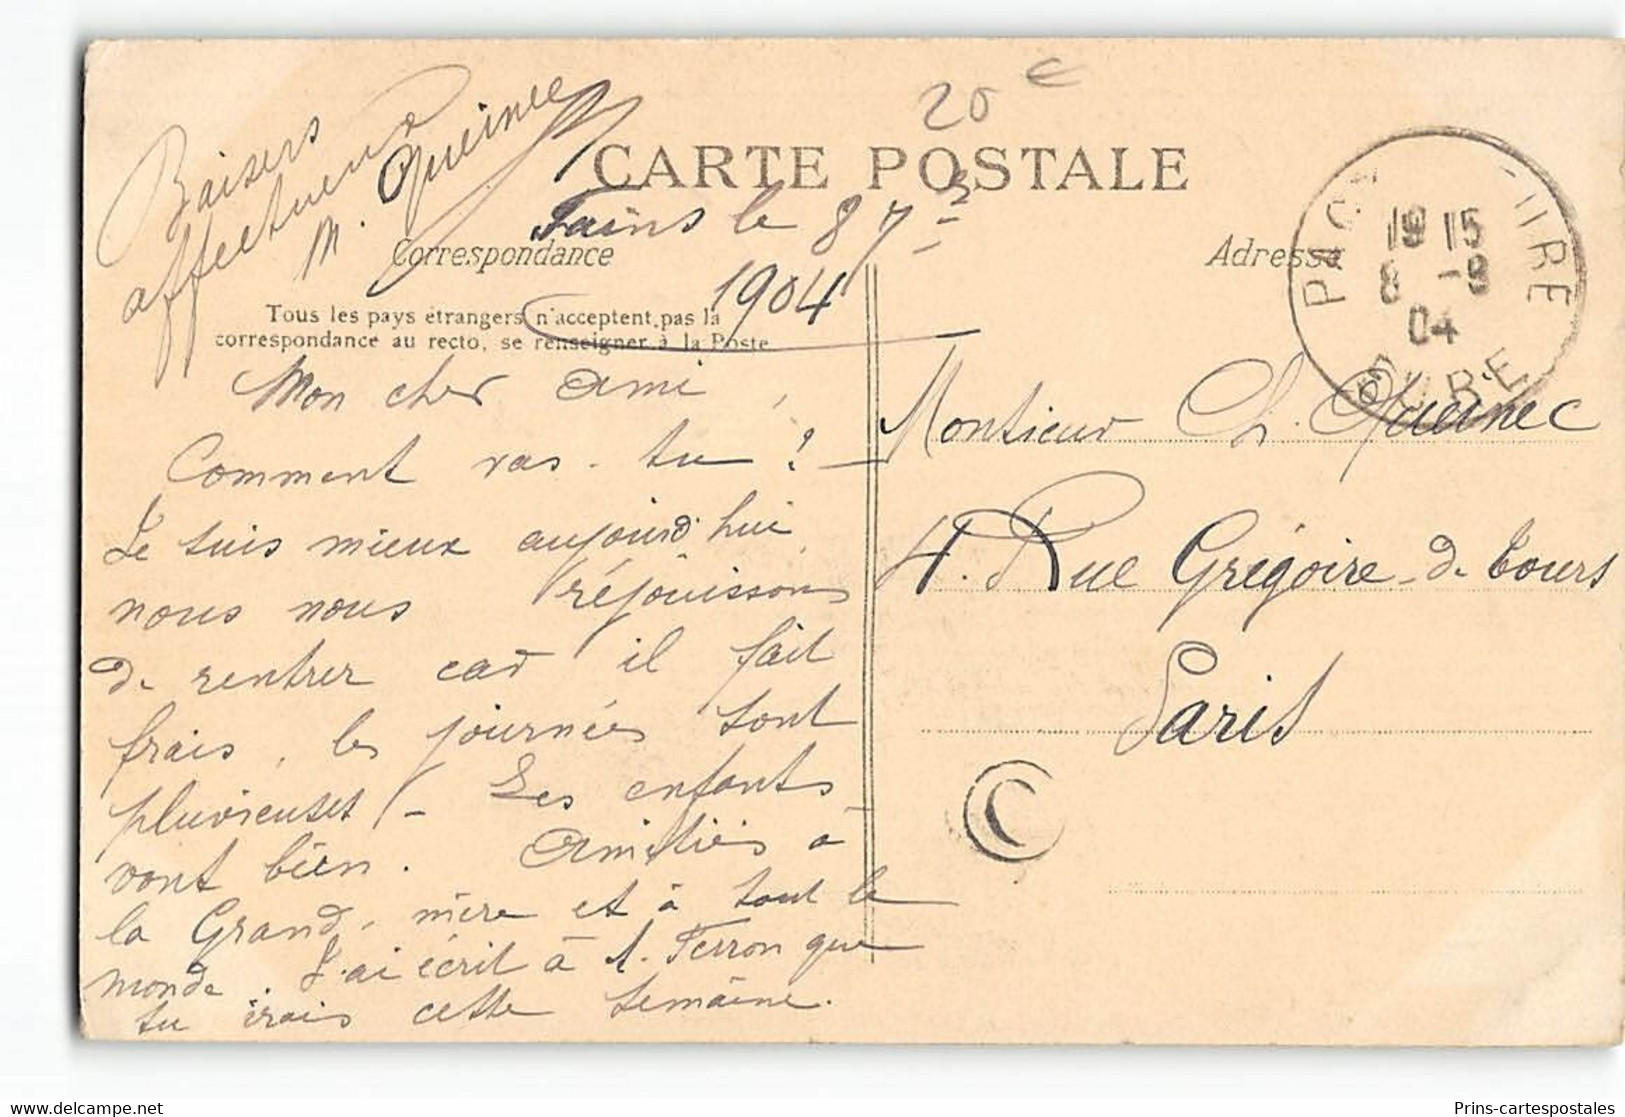 20 €
CARTE POSTALE
Fains le 8 7bre
1904
Correspondance
Adresse
Tous les pays étrangers n'acceptent pas la
correspondance au recto, se renseigner à la Poste
PACY EURE
19 15
8 -9
04
EURE
Mon cher ami,
Comment vas-tu ?
Je suis mieux aujourd'hui,
nous nous réjouissons
de rentrer car il fait
frais, les journées sont
pluvieuses - Les enfants
vont bien. Amitiés à
la Grand-mère et à tout le
monde. J'ai écrit à A. Ferron que
tu irais cette semaine.
Baisers
affectueux
M. Queinnec
Monsieur Ch. Queinnec
4. Rue Grégoire-de Tours
Paris
C
Prins-cartespostales